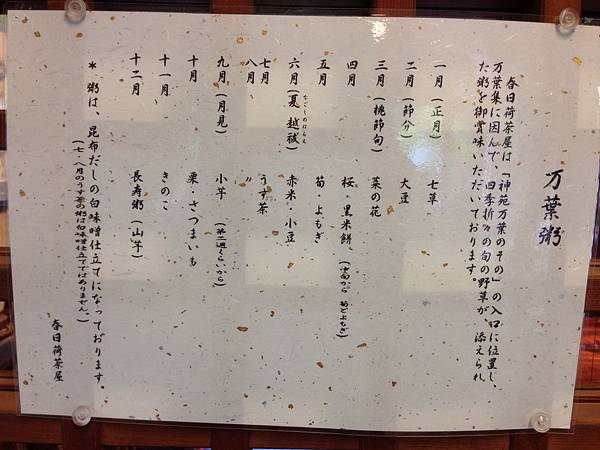 万葉粥
春日荷茶屋は「神苑万葉のその」の入口に位置し
万葉集に因んで、四季折々の旬の野草が、添えられ
た粥を御賞味いただいております。
一月（正月）　七草
二月（節分）　大豆
三月（桃節句）　菜の花
四月　桜・黒米餅（中旬から 筍とよもぎ）
五月　筍・よもぎ
六月（夏越祓）　赤米・小豆
なごしのはらえ
七月　うす茶
八月　〃
九月（月見）　小芋（第二週くらいから）
十月　栗・さつまいも
十一月　きのこ
十二月　長寿粥（山芋）
＊粥は、昆布だしの白味噌仕立てになっております。
（七、八月のうす茶の粥は白味噌仕立てではありません。）
春日荷茶屋